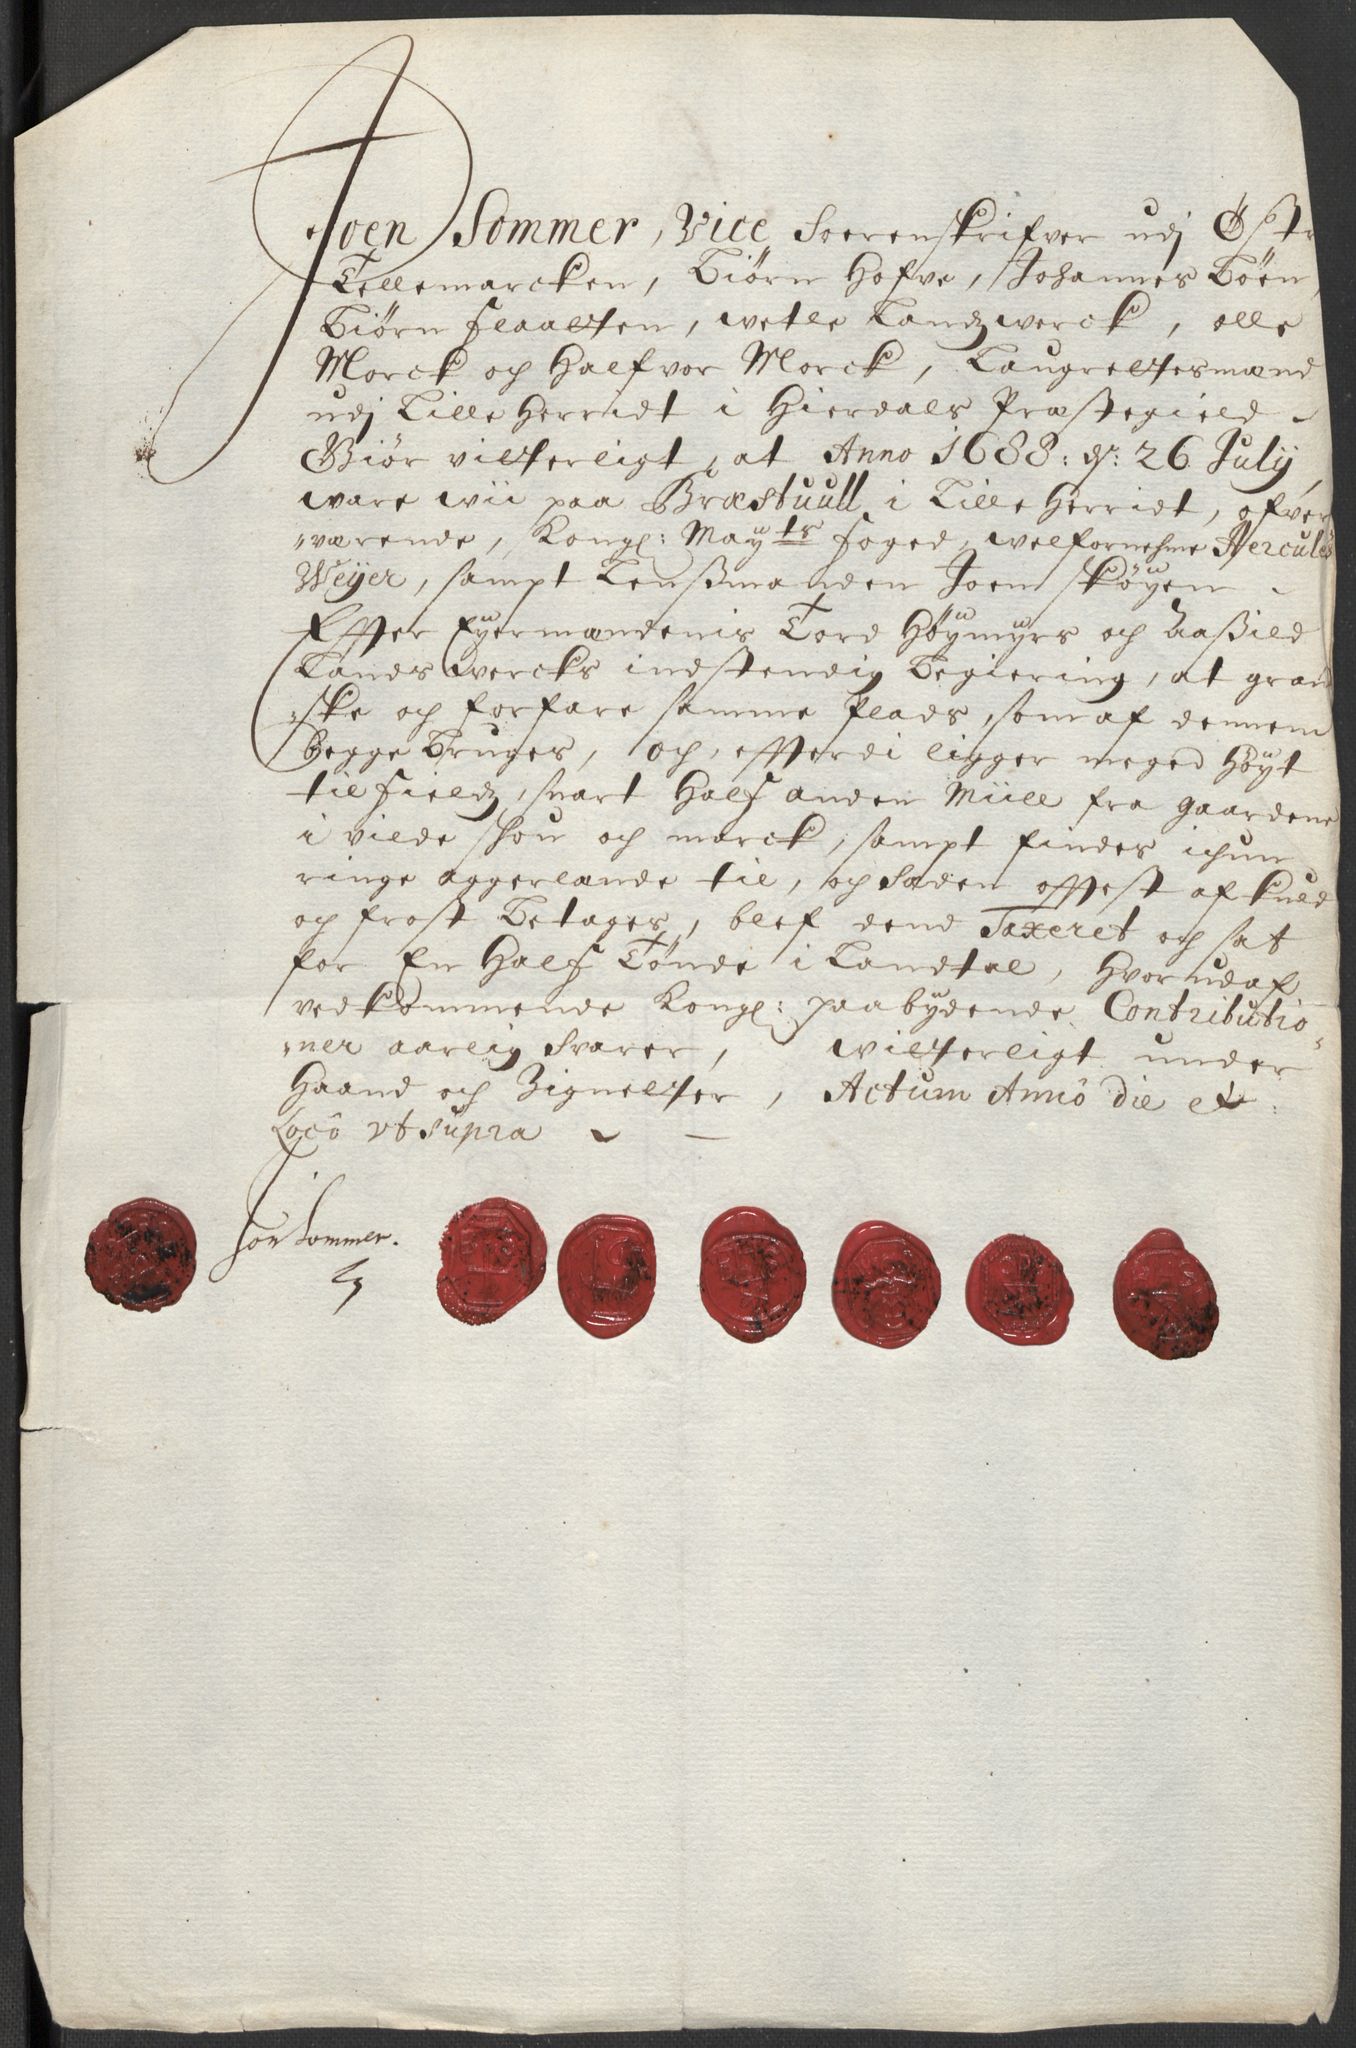 Joen Sommer, Vice Sorenskrifver udj Østr
Tellemarcken, Biörn Hofve, Johannes Böen,
Biörn Flaatten, wetle Landzwerck, olle
Morck och Halfvor Morck, Laugrettesmænd
udj Lille Herridt i Hierdals Præstegield
Giör vitterligt, at Anno 1688: d: 26 July,
ware wii paa Bræstuull i Lille Herridt, ofver
wærende, Kongl: May.ts foged, welfornehme Hercules
Weyer, sampt Lenßmanden Joen Sköyen
Effter Eyermændenis Tord Höymyrs och Aaßild
Landswercks indstendig Begiering, at gran
ske och forfare samme Plads, som af dennem
begge Bruges, och, effterdi ligger meged Höyt
til fieldz, snart Half anden Miill fra gaardene
i vilde skou och marck, sampt findes ichun
ringe aggerlande til, och Sæden offtest af kuld
och frost Betages, blef dend Taxeret och sat
for En Half Tönde i Landtal, Hvorudaf
vedkommende Kongl: paabydende Contributio
ner aarlig Svarer, witterligt under
Haand och Zignetter, Actum Annô die et
Locô vt supra
Jon Sommer.